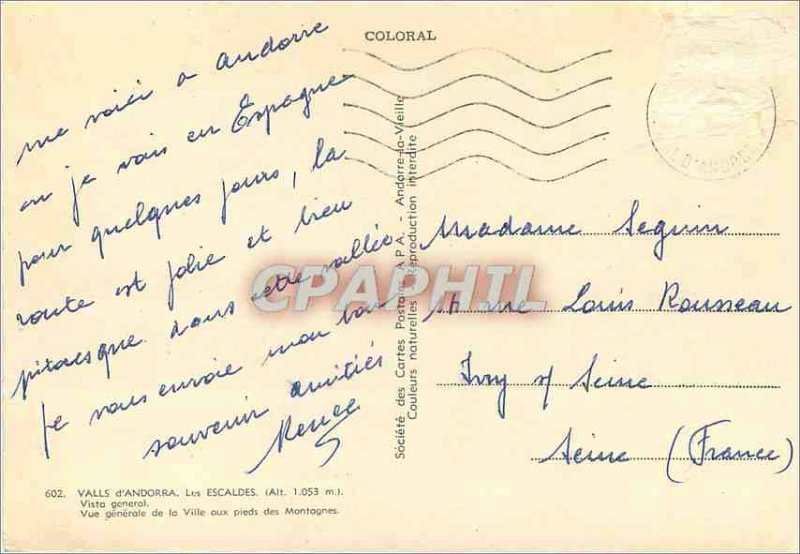 COLORAL
me voici a andorre
ou je vais en Espagne
pour quelques jours, la
route est jolie et bien
pitoresque dans cette vallée
Je vous envoie mon bon
souvenir amitiés
Renee
Madame Seguin
rue Louis Rousseau
Ivry s/ Seine
Seine (France)
Société des Cartes Postales A.P.A. - Andorre-la-Vieille
Couleurs naturelles Reproduction interdite
CPAPHIL
602. VALLS d'ANDORRA. Les ESCALDES. (Alt. 1.053 m.).
Vista general.
Vue générale de la Ville aux pieds des Montagnes.